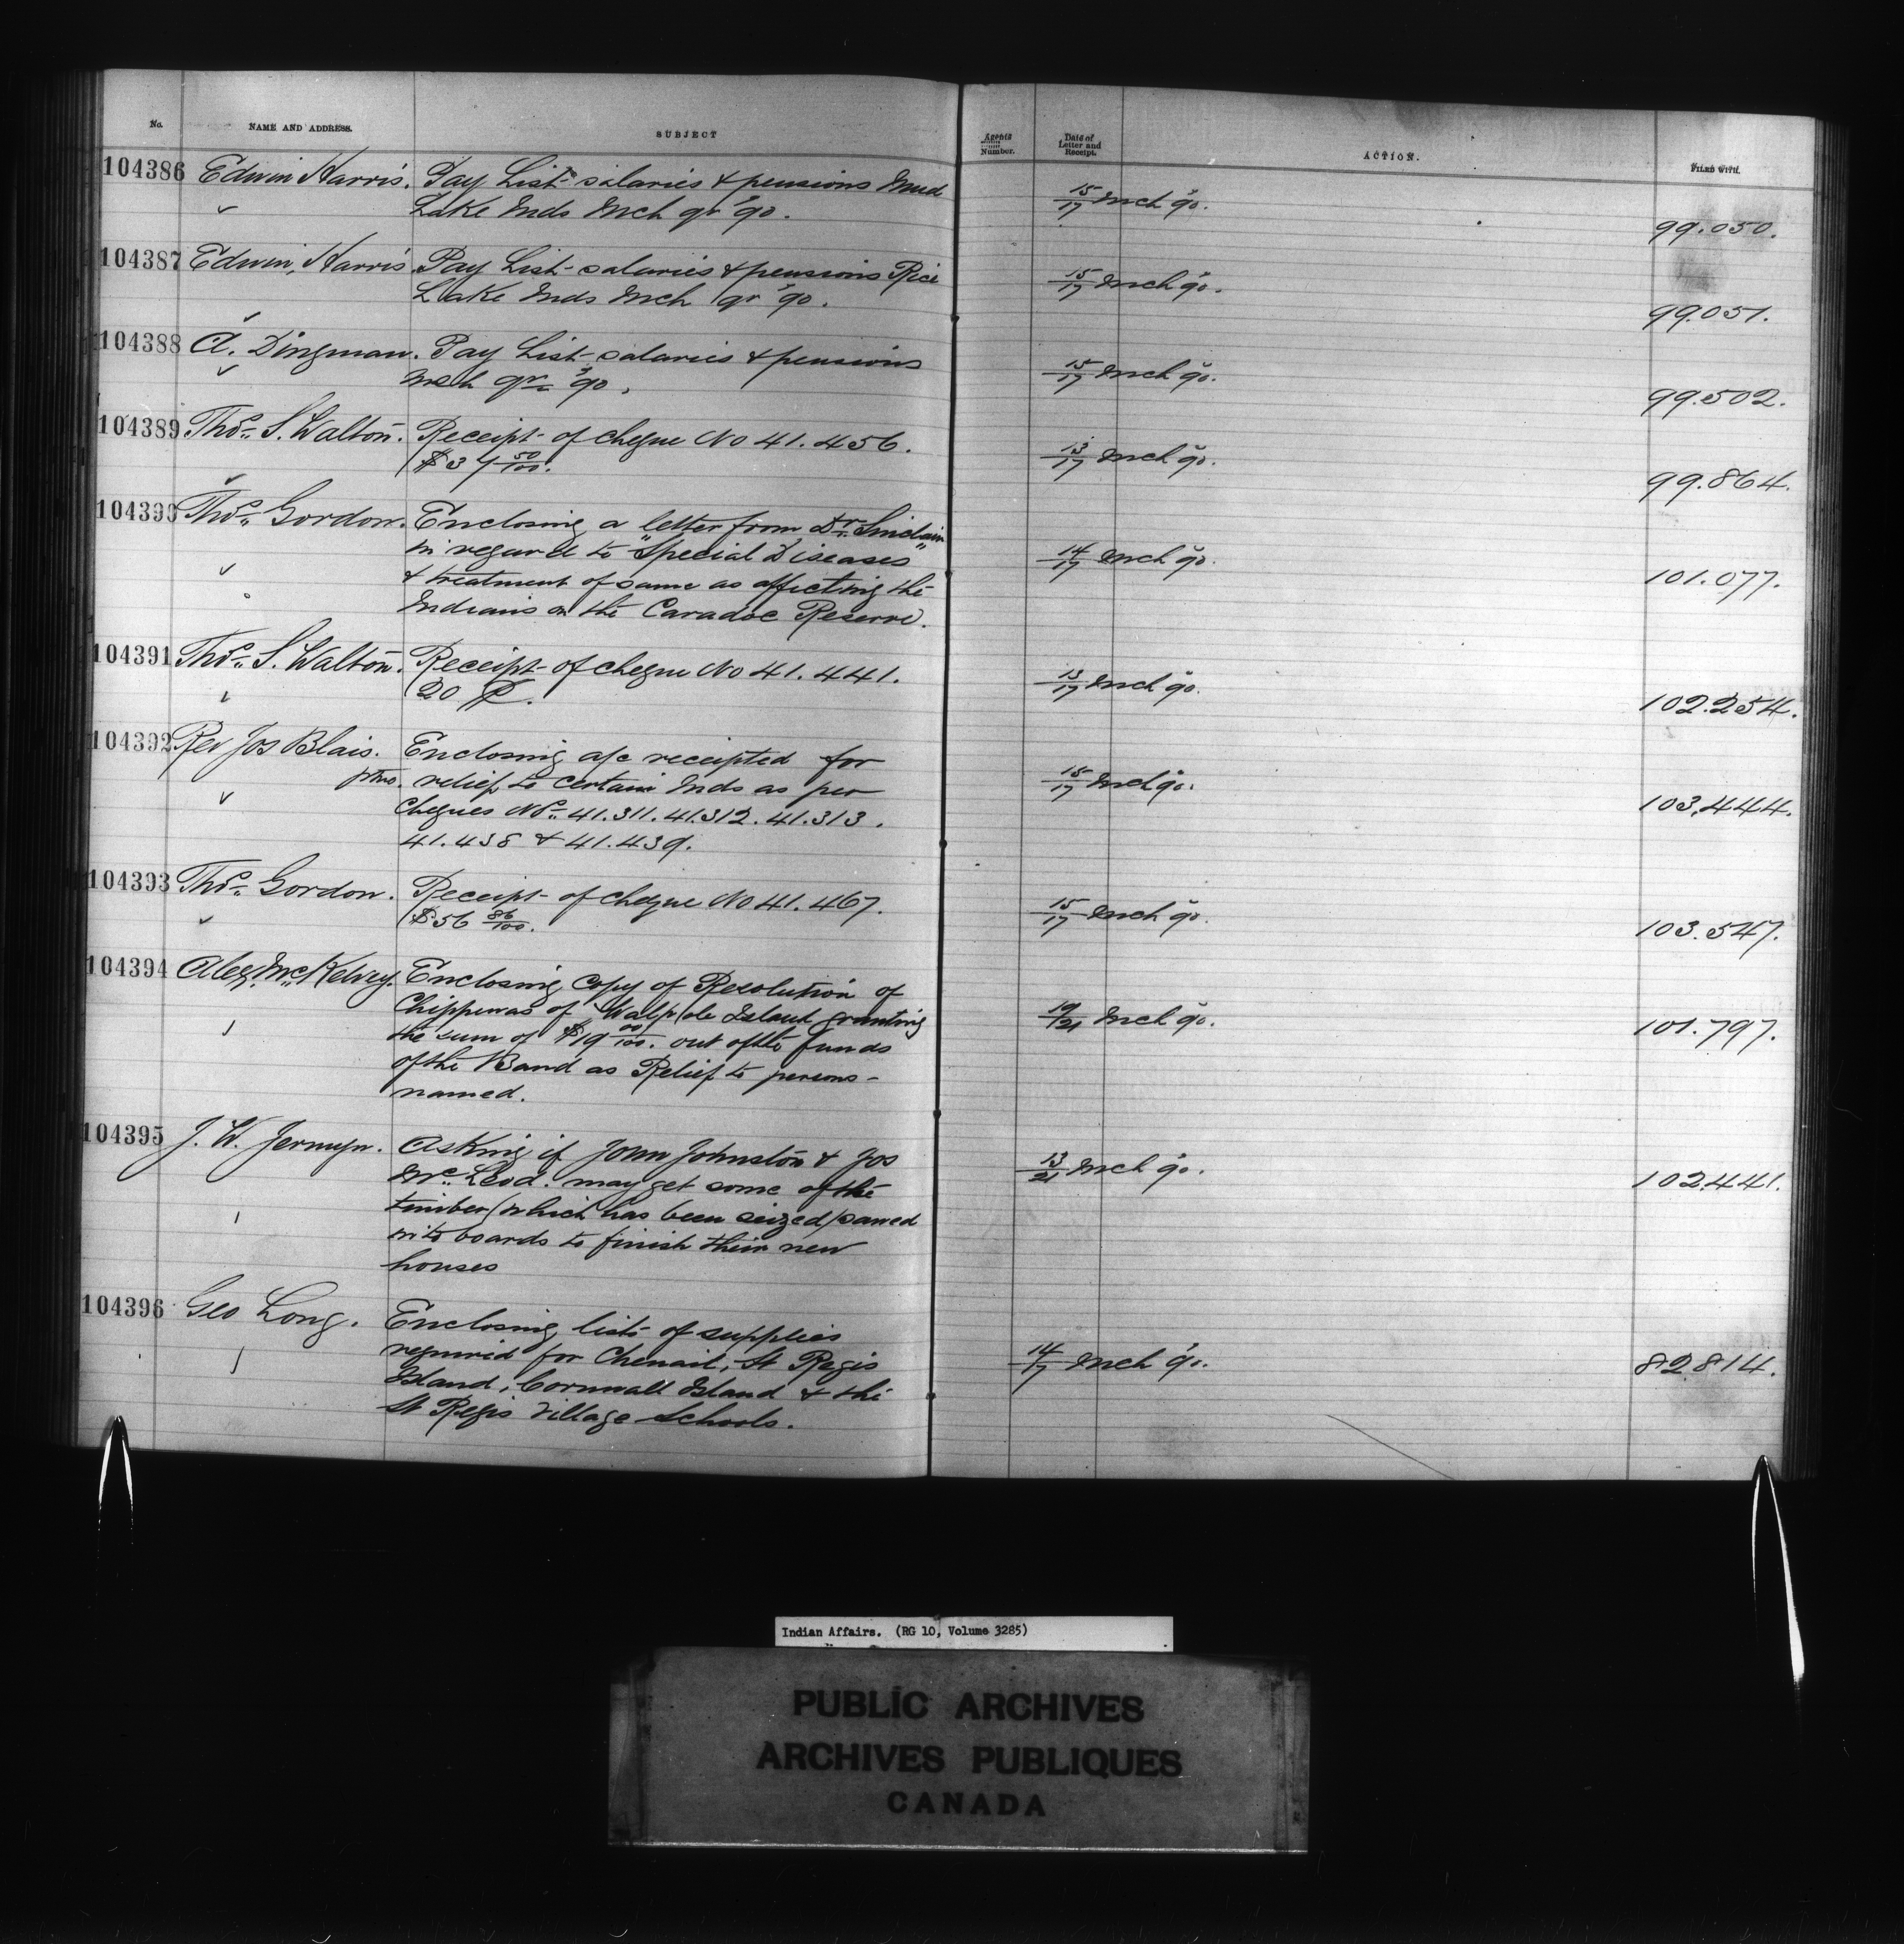 No. NAME AND ADDRESS. SUBJECT Agents Number. Date of Letter and Receipt. ACTION. FILED WITH.
104386 Edwin Harris. Pay List salaries & pensions Mud
Lake Inds Mch qr '90. 15/17 Mch 90. 99.050.
104387 Edwin Harris Pay List salaries & pensions Rice
Lake Inds Mch qr '90. 15/17 Mch 90. 99.051.
104388 A. Dingman. Pay List salaries & pensions
Mch qr '90. 15/17 Mch 90. 99.502.
104389 Thos. S. Walton. Receipt of cheque No 41.456.
$37 50/100. 13/17 Mch 90. 99.864.
104390 Thos. Gordon. Enclosing a letter from Dr. Sinclair
in regard to "Special Diseases"
& treatment of same as affecting the
Indians on the Caradoc Reserve. 14/17 Mch 90. 101.077.
104391 Thos. S. Walton. Receipt of cheque No 41.441.
20 13/17 Mch 90. 102.254.
104392 Rev Jos Blais. Enclosing a/c receipted for
relief to certain Inds as per
cheques Nos. 41.311. 41.312. 41.313.
41.438 & 41.439. 15/17 Mch 90. 103.444.
104393 Thos. Gordon. Receipt of cheque No 41.467.
$56 86/100. 15/17 Mch 90. 103.547.
104394 Alex. McKelvey. Enclosing Copy of Resolution of
Chippewas of Walpole Island granting
the sum of $19 00/100. out of the funds
of the Band as Relief to persons
named. 19/21 Mch 90. 101.797.
104395 J. W. Jermyn. Asking if John Johnston & Jos
McLeod. may get some of the
timber (which has been seized) sawed
into boards to finish their new
houses 13/21 Mch 90. 102.441.
104396 Geo Long. Enclosing lists of supplies
required for Chenail, St Regis
Island, Cornwall Island & the
St Regis Village Schools. 14/17 Mch '90. 82.814.
Indian Affairs. (RG 10, Volume 3285)
PUBLIC ARCHIVES
ARCHIVES PUBLIQUES
CANADA